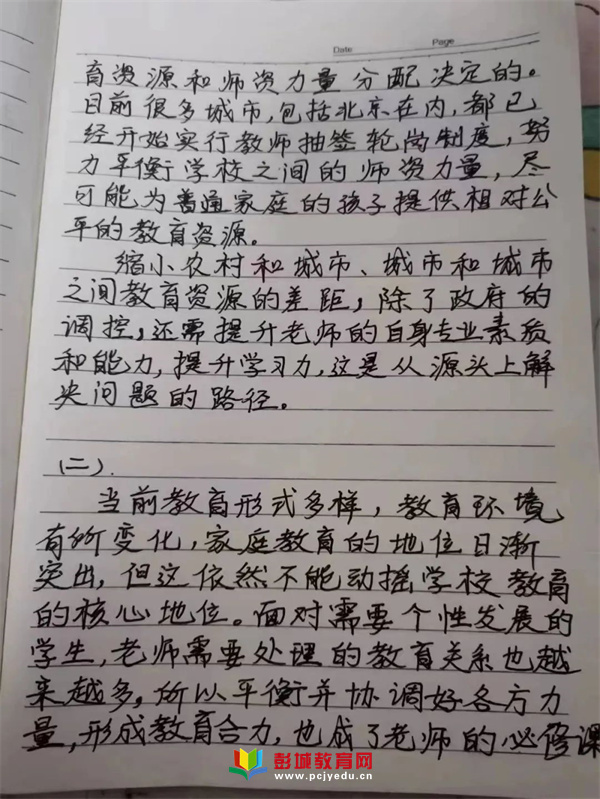 Date
Page
育资源和师资力量分配决定的。
目前很多城市,包括北京在内,都已
经开始实行教师抽签轮岗制度,努
力平衡学校之间的师资力量,尽
可能为普通家庭的孩子提供相对公
平的教育资源。
缩小农村和城市、城市和城市
之间教育资源的差距,除了政府的
调控,还需提升老师的自身专业素质
和能力,提升学习力,这是从源头上解
决问题的路径。
(二).
当前教育形式多样,教育环境
有所变化,家庭教育的地位日渐
突出,但这依然不能动摇学校教育
的核心地位。面对需要个性发展的
学生,老师需要处理的教育关系也越
来越多,所以平衡并协调好各方力
量,形成教育合力,也成了老师的必修课
彭城教育网
www.pcjyedu.cn